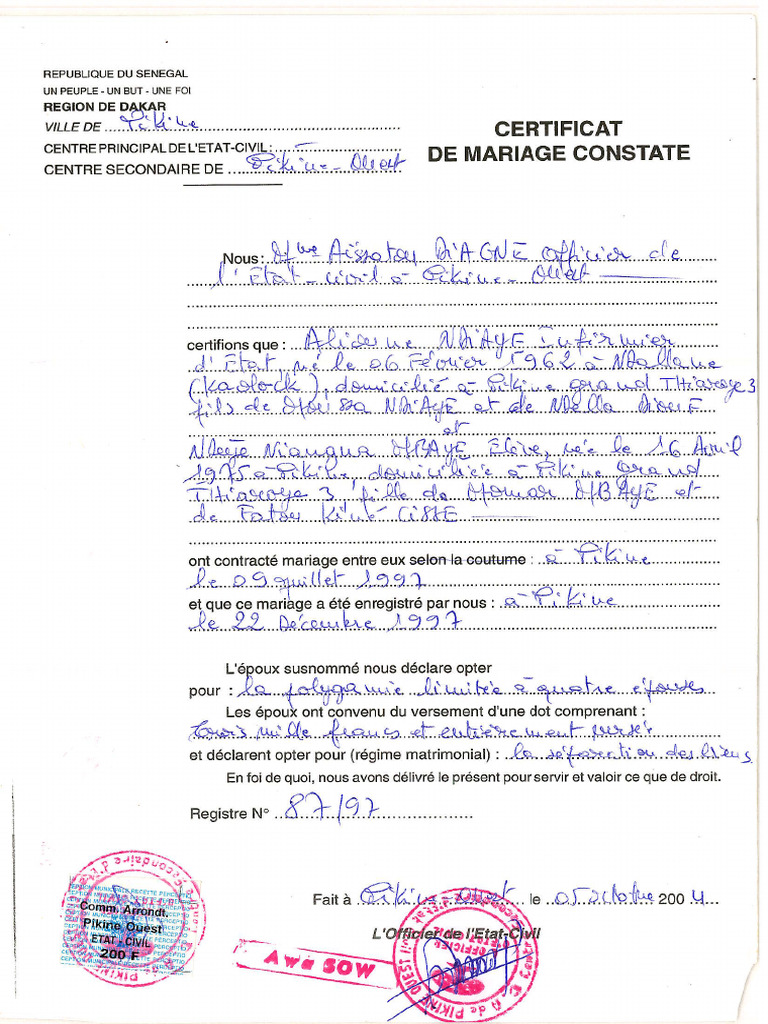 REPUBLIQUE DU SENEGAL
UN PEUPLE - UN BUT - UNE FOI
REGION DE DAKAR
VILLE DE Pikine
CENTRE PRINCIPAL DE L'ETAT-CIVIL : —
CENTRE SECONDAIRE DE Pikine-Ouest
CERTIFICAT
DE MARIAGE CONSTATE
Nous : Mme Aïssatou DIAGNE officier de
l'Etat-civil à Pikine-Ouest
certifions que : Alioune NDIAYE infirmier
d'Etat, né le 06 Février 1962 à Ndallane
(Kaolack), domicilié à Pikine grand THiaroye 3
fils de Moussa NDIAYE et de Ndella
et
Ndeye MBAYE Elève, née le 16 Avril
1975 à Pikine, domiciliée à Pikine Grand
THiaroye 3, fille de Momar MBAYE et
de Fatou Kiné CISSE
ont contracté mariage entre eux selon la coutume : à Pikine
le 09 juillet 1997
et que ce mariage a été enregistré par nous : à Pikine
le 22 Décembre 1997
L'époux susnommé nous déclare opter
pour : la polygamie limitée à quatre épouses
Les époux ont convenu du versement d'une dot comprenant :
trois mille francs et entièrement versée
et déclarent opter pour (régime matrimonial) : la séparation des biens
En foi de quoi, nous avons délivré le présent pour servir et valoir ce que de droit.
Registre N° 87/97
Fait à Pikine-Ouest le 05 octobre 2004
L'Officier de l'Etat-Civil
Comm. Arrondt.
Pikine Ouest
ETAT - CIVIL
200 F
Awa SOW